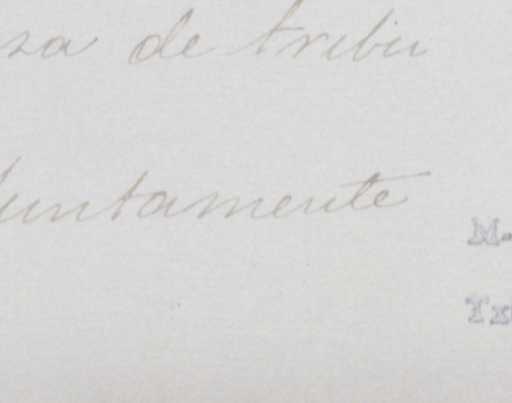 za de tribu
juntamente
M
Tz